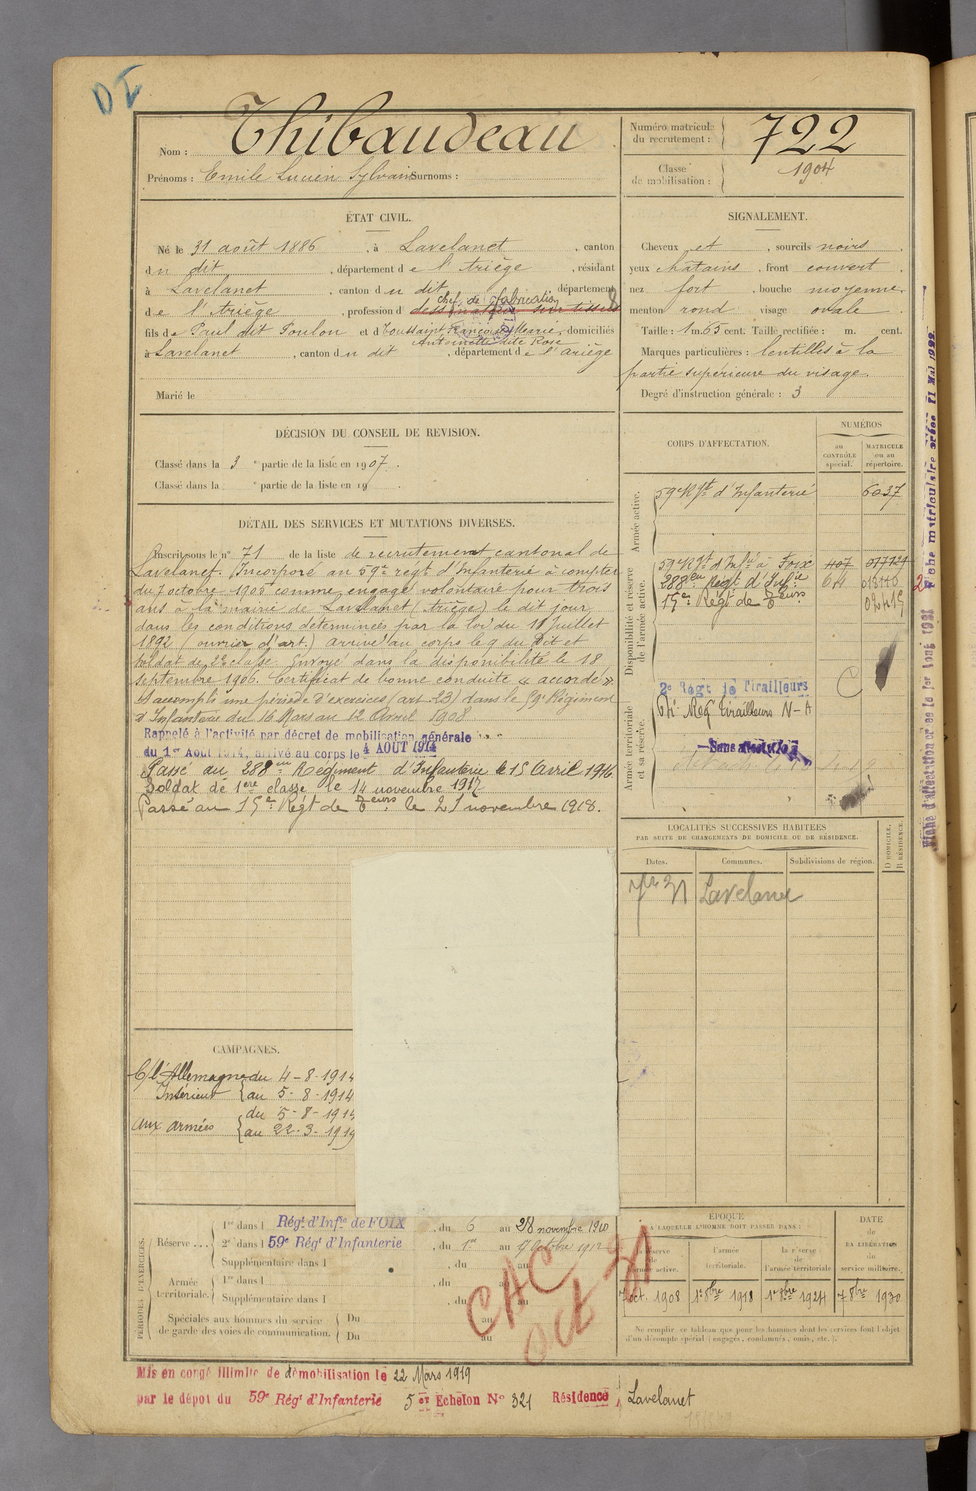 DI
Nom : Thibaudeau
Prénoms : Emile Lucien Sylvain Surnoms :
Numéro matricule du recrutement : 722
Classe de mobilisation : 1904
ÉTAT CIVIL.
Né le 31 août 1886, à Lavelanet, canton
du dit, département de l'Ariège, résidant
à Lavelanet, canton du dit, département
chef de fabrication
de l'Ariège, profession d' dessinateur sur tissus
fils de Paul dit Foulon et d Toussaint Françoise Marie, domiciliés
Antoinette dite Rose
à Lavelanet, canton du dit, département de l'Ariège
Marié le
SIGNALEMENT.
Cheveux et, sourcils noirs
yeux chatains, front couvert
nez fort, bouche moyenne
menton rond visage ovale
Taille : 1 m. 65 cent. Taille rectifiée : m. cent.
Marques particulières : lentilles à la
partie supérieure du visage.
Degré d'instruction générale : 3
DÉCISION DU CONSEIL DE REVISION.
Classé dans la 3e partie de la liste en 1907.
Classé dans la e partie de la liste en 19
DÉTAIL DES SERVICES ET MUTATIONS DIVERSES.
Inscrit sous le n° 71 de la liste de recrutement cantonal de
Lavelanet. Incorporé au 59e régt d'Infanterie à compter
du 7 octobre 1905 comme engagé volontaire pour trois
ans à la mairie de Lavelanet (Ariège) le dit jour
dans les conditions déterminées par la loi du 11 Juillet
1892 (ouvrier d'art.) arrivé au corps le 9 du dit et
soldat de 2e classe. Envoyé dans la disponibilité le 18
septembre 1906. Certificat de bonne conduite « accordé »
A accompli une période d'exercices (art. 23) dans le 59e Régiment
d'Infanterie du 16 Mars au 12 Avril 1908
Rappelé à l'activité par décret de mobilisation générale
du 1er Août 1914, arrivé au corps le 4 AOUT 1914
Passé au 288eme Régiment d'Infanterie le 15 Avril 1916
Soldat de 1ere classe le 14 novembre 1917
Passé au 15e Régt de Teurs le 21 novembre 1918.
CORPS D'AFFECTATION.
NUMÉROS
au CONTRÔLE spécial.
MATRICULE ou au répertoire.
Armée active.
59e Rgt d'Infanterie 6037
Disponibilité et réserve de l'armée active.
59e Rgt d'Infie à Foix 1107
288eme Régt d'Infie
15e Régt de Teurs 02415
Armée territoriale et sa réserve.
2e Régt de Tirailleurs
Régt Tirailleurs N-A
Sans affectation
Fiche d'affectation créée le 1er Août 1921 Fiche matriculaire créée 11 Mai 1922
LOCALITÉS SUCCESSIVES HABITÉES
PAR SUITE DE CHANGEMENTS DE DOMICILE OU DE RÉSIDENCE.
Dates. Communes. Subdivisions de région. D DOMICILE. R RÉSIDENCE.
31 Lavelanet
CAMPAGNES.
C/ l'Allemagne du 4-8-1914
Intérieur au 5-8-1914
du 5-8-1914
Aux armées au 22-3-1919
PÉRIODES D'EXERCICES.
Réserve ... 1re dans l Régt d'Infie de FOIX, du 6 au 28 novembre 1910
2e dans l 59e Régt d'Infanterie, du 1er au 17 Octobre 1912
Supplémentaire dans l, du au
Armée territoriale. 1re dans l, du au
Supplémentaire dans l, du au
Spéciales aux hommes du service de garde des voies de communication. Du au
Du au
CAC
Oct 31
ÉPOQUE
À LAQUELLE L'HOMME DOIT PASSER DANS :
réserve de l'armée active. l'armée territoriale. la réserve de l'armée territoriale
DATE DE LA LIBÉRATION du service militaire.
7 oct. 1908 1er 8bre 1918 1er 8bre 1924 7 8bre 1930
Ne remplir ce tableau que pour les hommes dont les services font l'objet
d'un décompte spécial (engagés, condamnés, omis, etc.).
Mis en congé illimité de démobilisation le 22 Mars 1919
par le dépôt du 59e Régt d'Infanterie 5e Echelon N° 321 Résidence Lavelanet